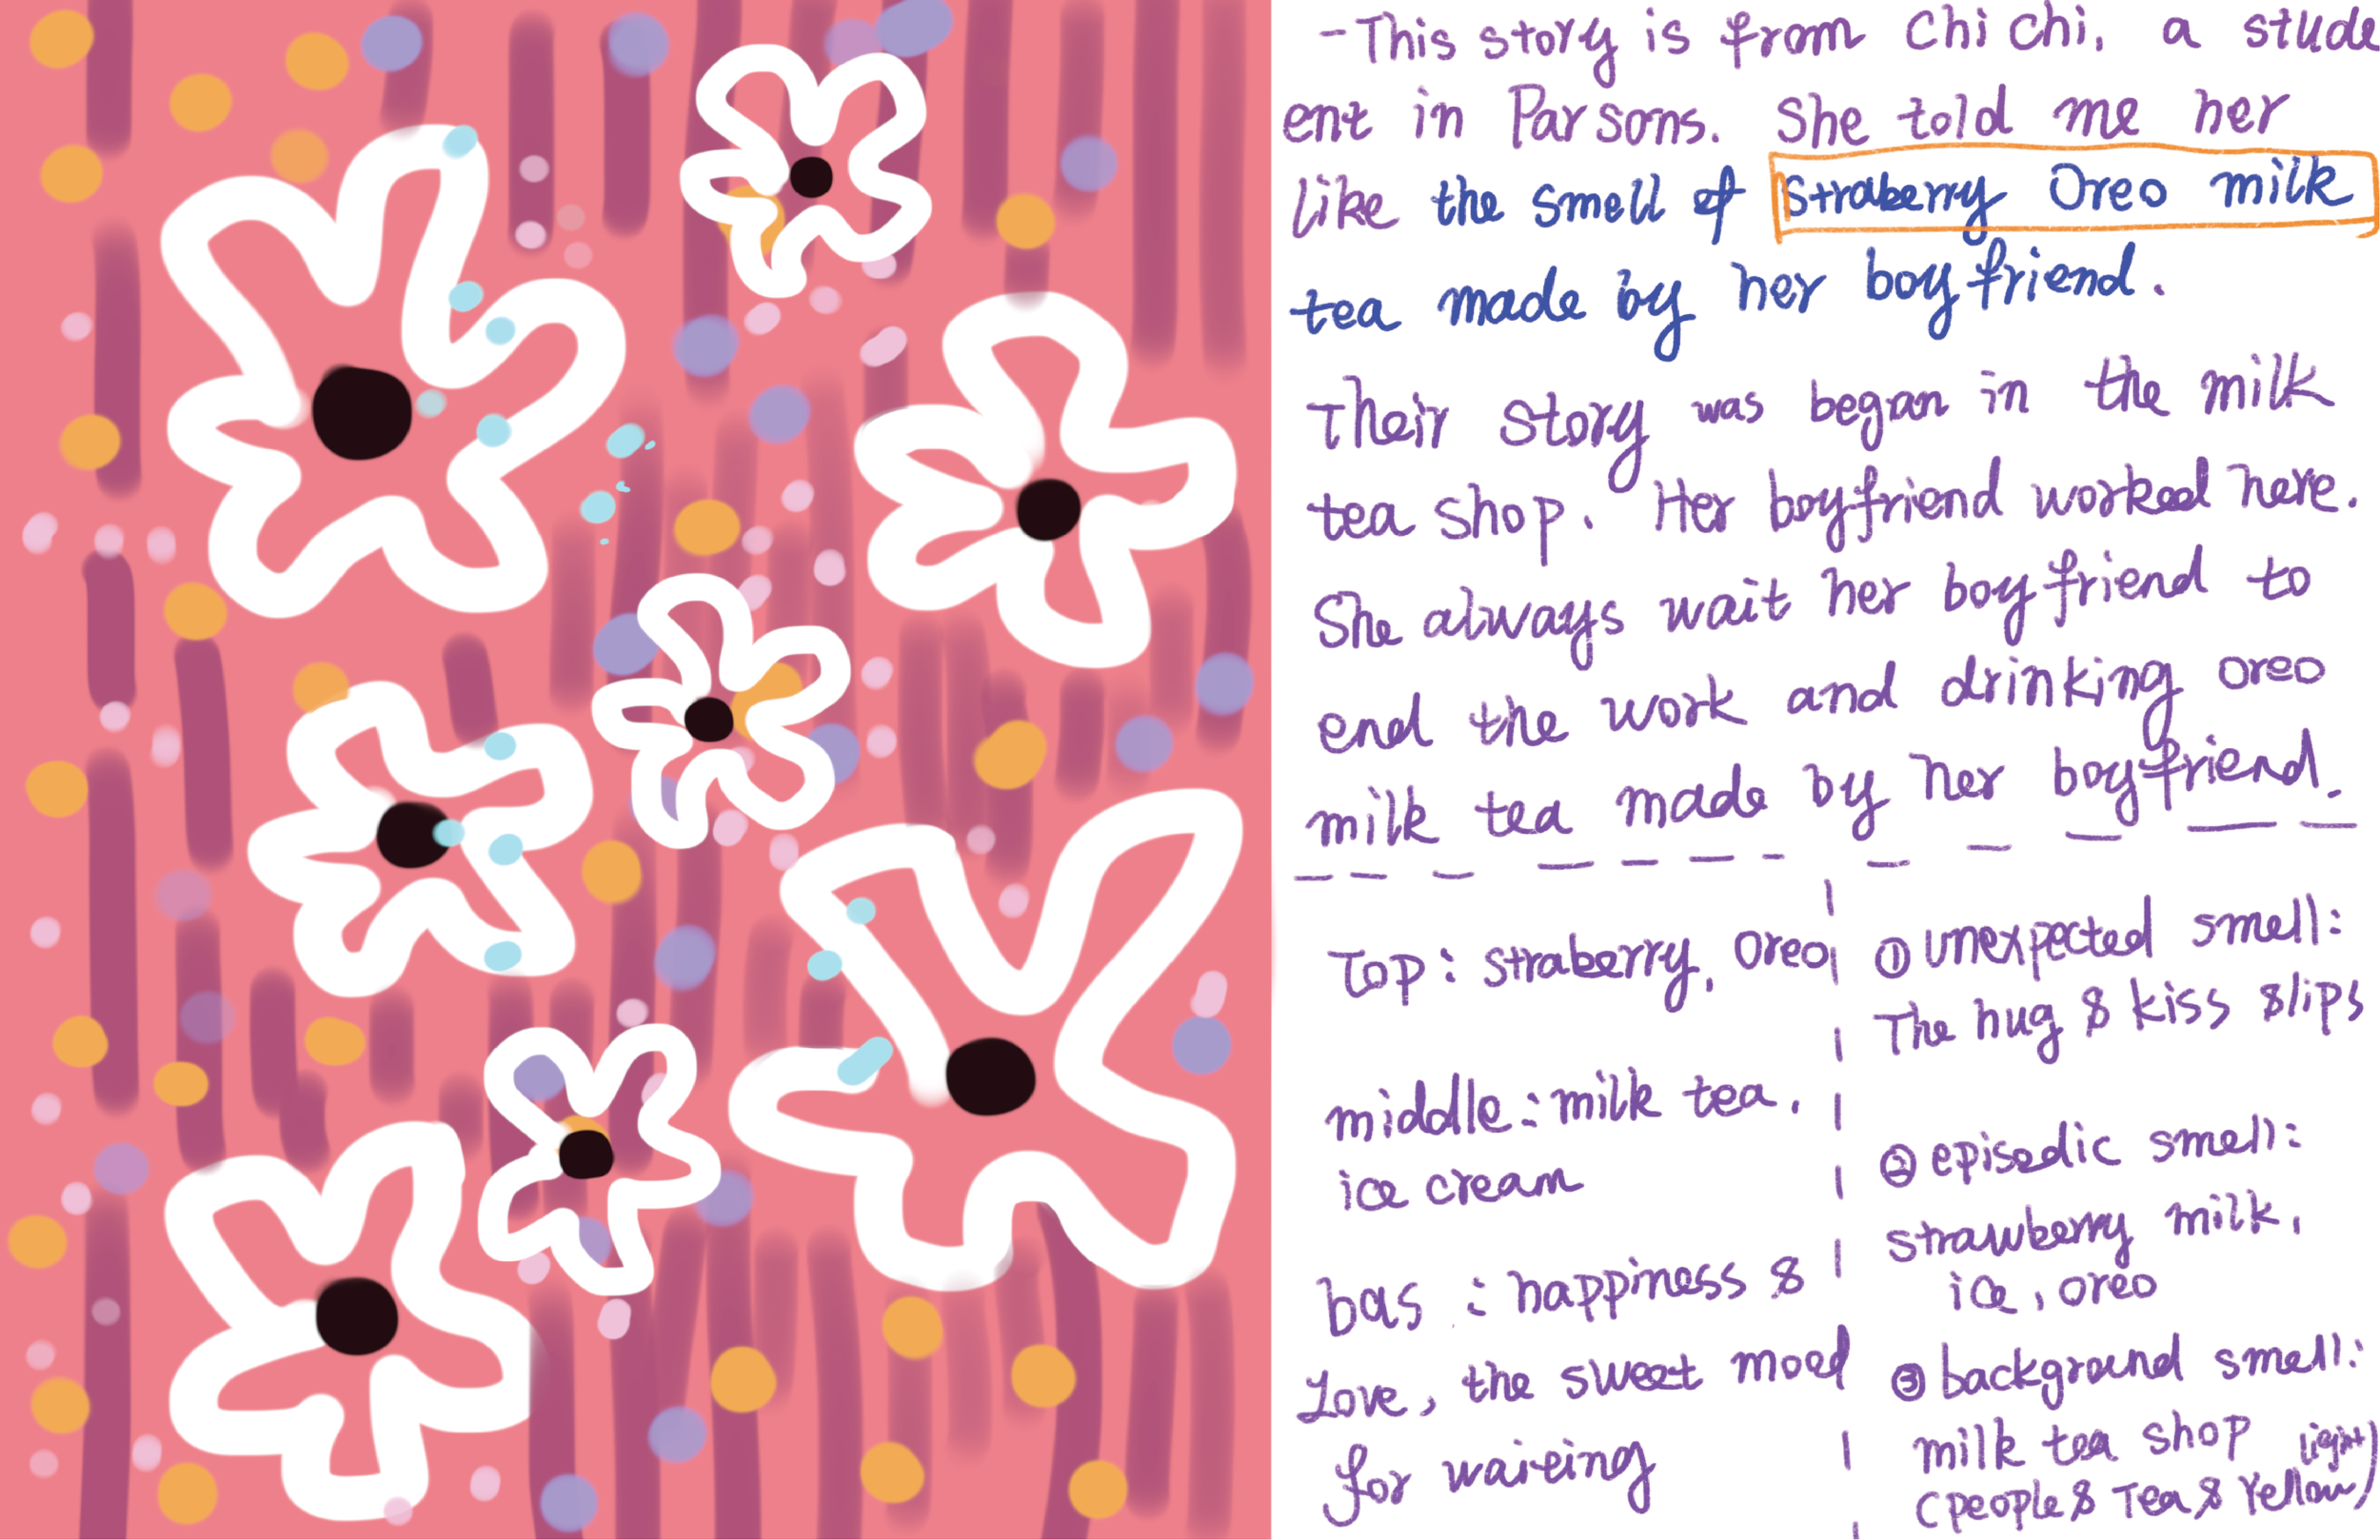 -This story is from Chi Chi, a stude
ent in Parsons. She told me her
like the smell of Straberry Oreo milk
tea made by her boyfriend.
Their story was began in the milk
tea shop. Her boyfriend worked here.
She always wait her boyfriend to
end the work and drinking oreo
milk tea made by her boyfriend.
Top: straberry, oreo
middle: milk tea,
ice cream
bas : happiness &
Love, the sweet mood
for waiting
① unexpected smell:
The hug & kiss slips
② episodic smell:
strawberry milk,
ice, oreo
③ background smell:
milk tea shop light)
(people & Tea & Yellow)